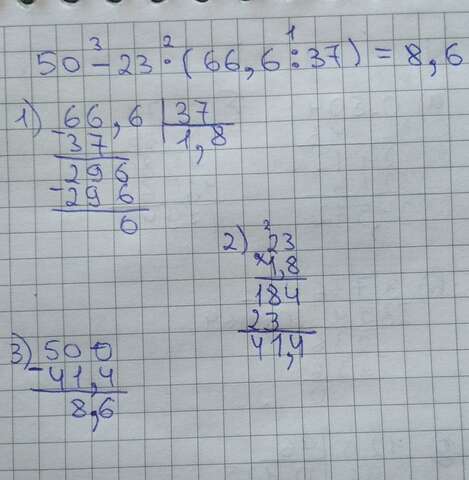 50 - 23 · (66,6 : 37) = 8,6
3 2 1
1) 66,6 | 37
- 37 | 1,8
296
- 296
0
2) 23
2
× 1,8
184
23
41,4
3) 50 0
- 41,4
8,6